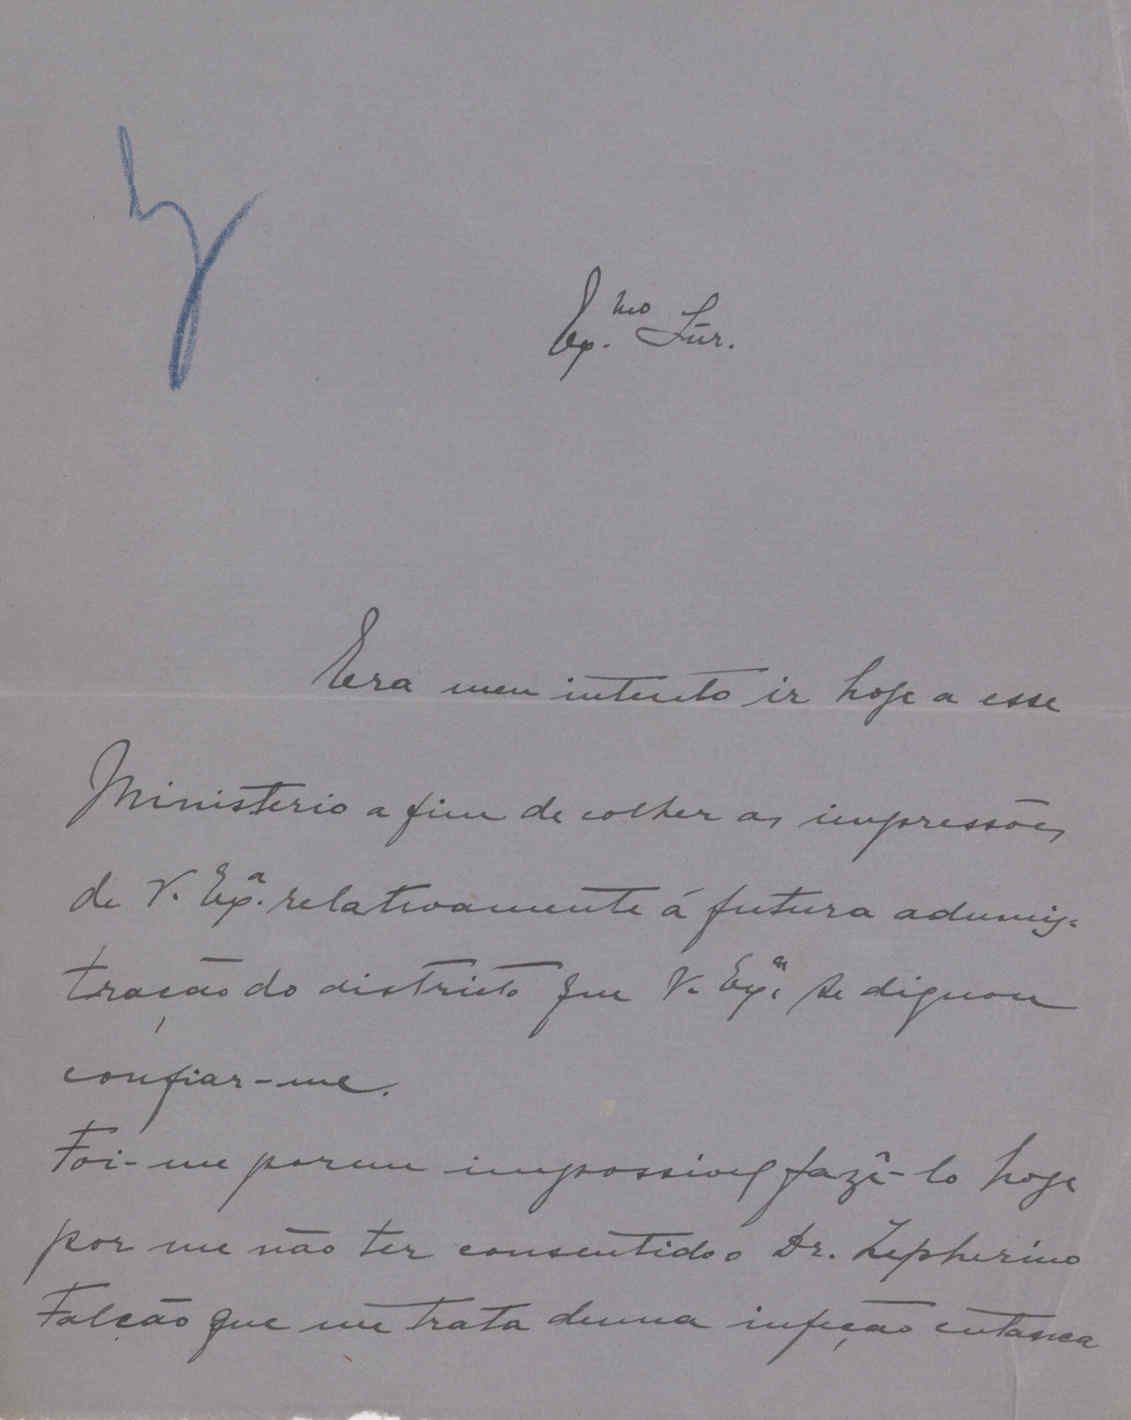 Ex.mo Snr.
Era meu intento ir hoje a esse
Ministerio a fim de colher as impressões
de V. Exª. relativamente á futura adminis-
tração do districto que V. Exª. se dignou
confiar-me.
Foi-me porem impossivel fazê-lo hoje
por me não ter consentido o Dr. Zepherino
Falcão que me trata duma infeção cutanea